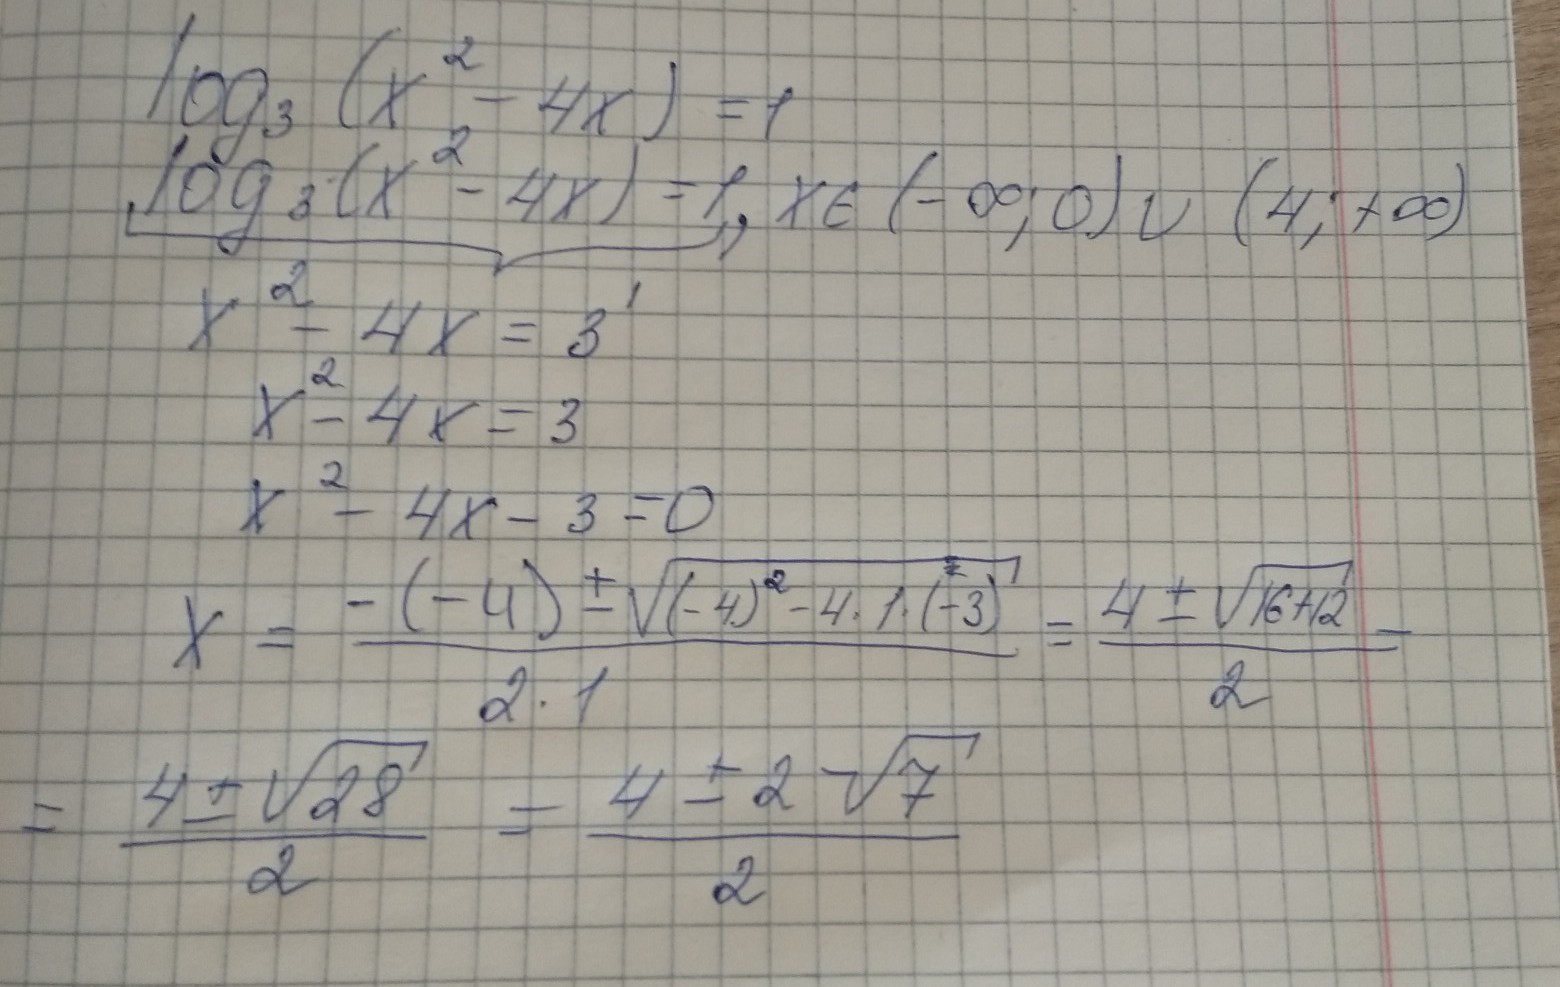 log₃ (x² - 4x) = 1
log₃ (x² - 4x) = 1, x ∈ (-∞; 0) ∪ (4; +∞)
x² - 4x = 3¹
x² - 4x = 3
x² - 4x - 3 = 0
x = (-(-4) ± √((-4)² - 4·1·(-3))) / (2·1) = (4 ± √(16+12)) / 2 =
= (4 ± √28) / 2 = (4 ± 2√7) / 2